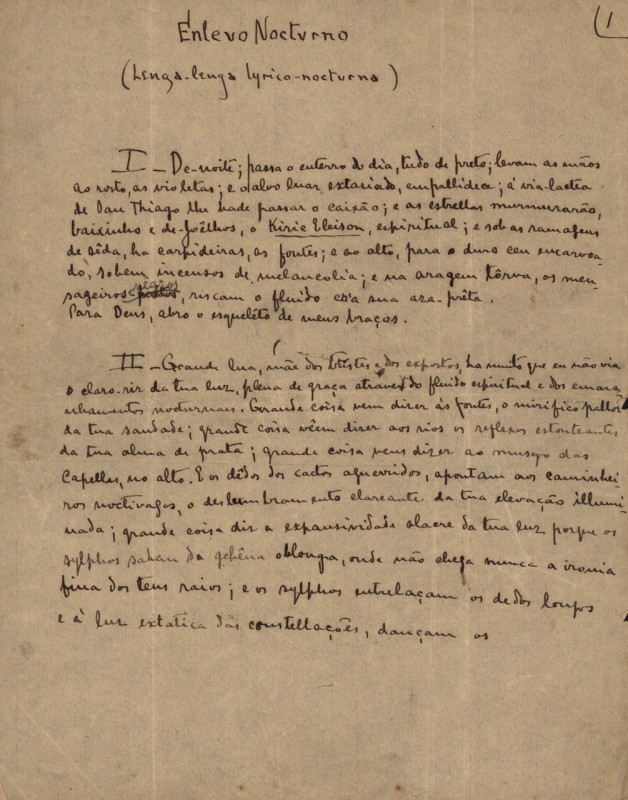 (1
Enlevo Nocturno
(Lenga-lenga lyrico-nocturna)
I - De-noite; passa o enterro do dia, tudo de preto; levam as mãos
ao rosto, as violetas; e o alvo luar, extasiado, empallidece; á via-lactea
de San Thiago lhe hade passar o caixão; e as estrellas murmurarão,
baixinho e de-joêlhos, o Kirie Eleison, espiritual; e sob as ramagens
de sêda, ha carpideiras, as fontes; e ao alto, para o duro ceu encarvoa-
do, sobem incensos de melancolia; e na aragem tôrva, os men-
sageiros riscam o fluido co'a sua aza-prêta.
Para Deus, abro o esquelêto de meus braços.
II - Grande lua, mãe dos tristes e dos expostos, ha muito que eu não via
o claro-rir da tua luz, plena de graça atravez do fluido espiritual e dos emara
nhamentos nocturnaes. Grande coisa vem dizer às fontes, o mirifico pallor
da tua saudade; grande coisa vêem dizer aos rios os reflexos estonteantes
da tua alma de prata; grande coisa vens dizer ao musgo das
Capellas, no alto. E os dêdos dos cactos aguerridos, apontam aos caminhei
ros noctivagos, o deslumbramento clareante da tua elevação illumi
nada; grande coisa diz a expansividade alacre da tua luz porque os
sylphos saham da gehêna oblonga, onde não chega nunca a ironia
fina dos teus raios; e os sylphos entrelaçam os dedos longos
e à luz extatica das constellações, dançam os